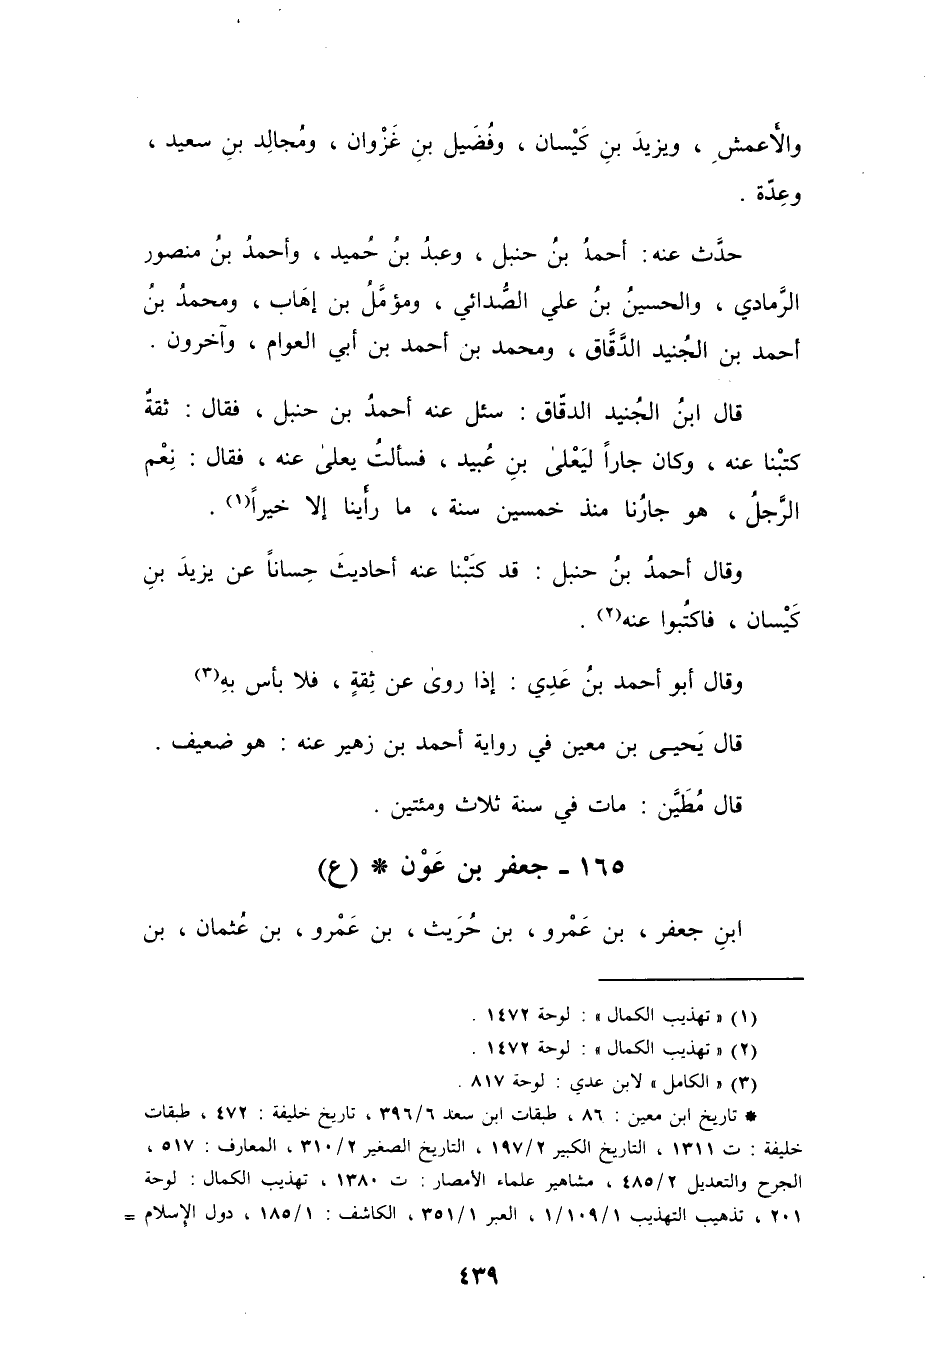 والأعمشِ ، ويزيدَ بنِ كَيْسان ، وفُضَيل بنِ غَزْوان ، ومُجالِد بنِ سعيد ،
وعِدّة .
حدَّث عنه : أحمدُ بنُ حنبل ، وعبدُ بنُ حُميد ، وأحمدُ بنُ منصور
الرَّمادي ، والحسينُ بنُ علي الصُّدائي ، ومؤمَّلُ بن إهَاب ، ومحمدُ بنُ
أحمد بن الجُنيد الدَّقَّاق ، ومحمد بن أحمد بن أبي العوام ، وآخرون .
قال ابنُ الجُنيد الدقّاق : سئل عنه أحمدُ بن حنبل ، فقال : ثقةٌ
كتبْنا عنه ، وكان جاراً ليَعْلىٰ بنِ عُبيد ، فسألتُ يعلىٰ عنه ، فقال : نِعْم
الرَّجلُ ، هو جارُنا منذ خمسين سنة ، ما رأينا إلا خيراً(١) .
وقال أحمدُ بنُ حنبل : قد كتَبْنا عنه أحاديثَ حِساناً عن يزيدَ بنِ
كَيْسان ، فاكتُبوا عنه(٢) .
وقال أبو أحمد بنُ عَدِي : إذا روىٰ عن ثِقةٍ ، فلا بأس بهِ(٣)
قال يَحيى بن معين في رواية أحمد بن زهير عنه : هو ضعيف .
قال مُطَيَّن : مات في سنة ثلاث ومئتين .
١٦٥ - جعفر بن عَوْن * (ع)
ابنِ جعفر ، بن عَمْرو ، بن حُرَيث ، بن عَمْرو ، بن عُثمان ، بن
(١) « تهذيب الكمال » : لوحة ١٤٧٢ .
(٢) « تهذيب الكمال » : لوحة ١٤٧٢ .
(٣) « الكامل » لابن عدي : لوحة ٨١٧ .
* تاريخ ابن معين : ٨٦ ، طبقات ابن سعد ٣٩٦/٦ ، تاريخ خليفة : ٤٧٢ ، طبقات
خليفة : ت ١٣١١ ، التاريخ الكبير ١٩٧/٢ ، التاريخ الصغير ٣١٠/٢ ، المعارف : ٥١٧ ،
الجرح والتعديل ٤٨٥/٢ ، مشاهير علماء الأمصار : ت ١٣٨٠ ، تهذيب الكمال : لوحة
٢٠١ ، تذهيب التهذيب ١/١٠٩/١ ، العبر ٣٥١/١ ، الكاشف : ١٨٥/١ ، دول الإسلام =
٤٣٩